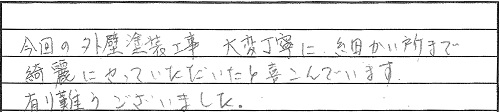 今回の外壁塗装工事 大変丁寧に、細かい所まで
綺麗にやっていただいたり喜こんでいます。
有り難うございました。